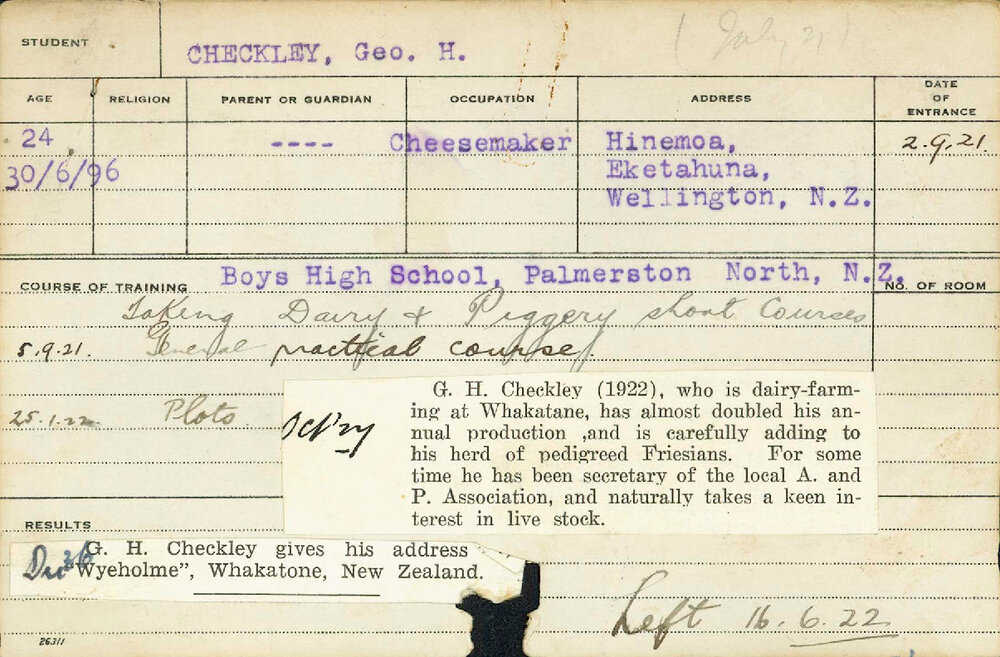 STUDENT
CHECKLEY, Geo. H.
(July 21)
AGE RELIGION PARENT OR GUARDIAN OCCUPATION ADDRESS DATE OF ENTRANCE
24 ---- Cheesemaker Hinemoa, 2.9.21.
30/6/96 Eketahuna,
Wellington, N.Z.
Boys High School, Palmerston North, N.Z.
COURSE OF TRAINING NO. OF ROOM
Taking Dairy & Piggery short Courses
5.9.21. General practical course.
25.1.22. Plots.
G. H. Checkley (1922), who is dairy-farm-
ing at Whakatane, has almost doubled his an-
nual production ,and is carefully adding to
his herd of pedigreed Friesians. For some
time he has been secretary of the local A. and
P. Association, and naturally takes a keen in-
terest in live stock.
RESULTS
G. H. Checkley gives his address
Wyeholme", Whakatone, New Zealand.
Left 16.6.22
26311